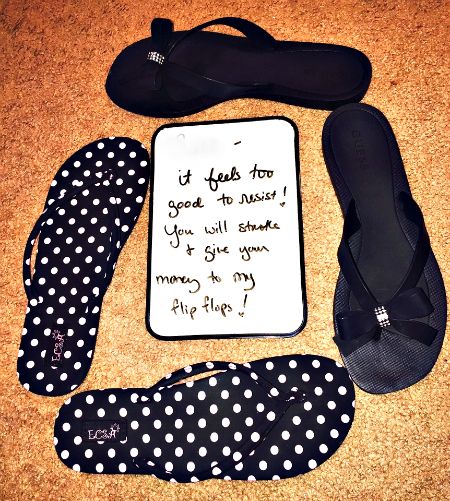 it feels too
good to resist!
You will stroke
& give your
money to my
flip flops!
GUESS
EC&A
EC&A